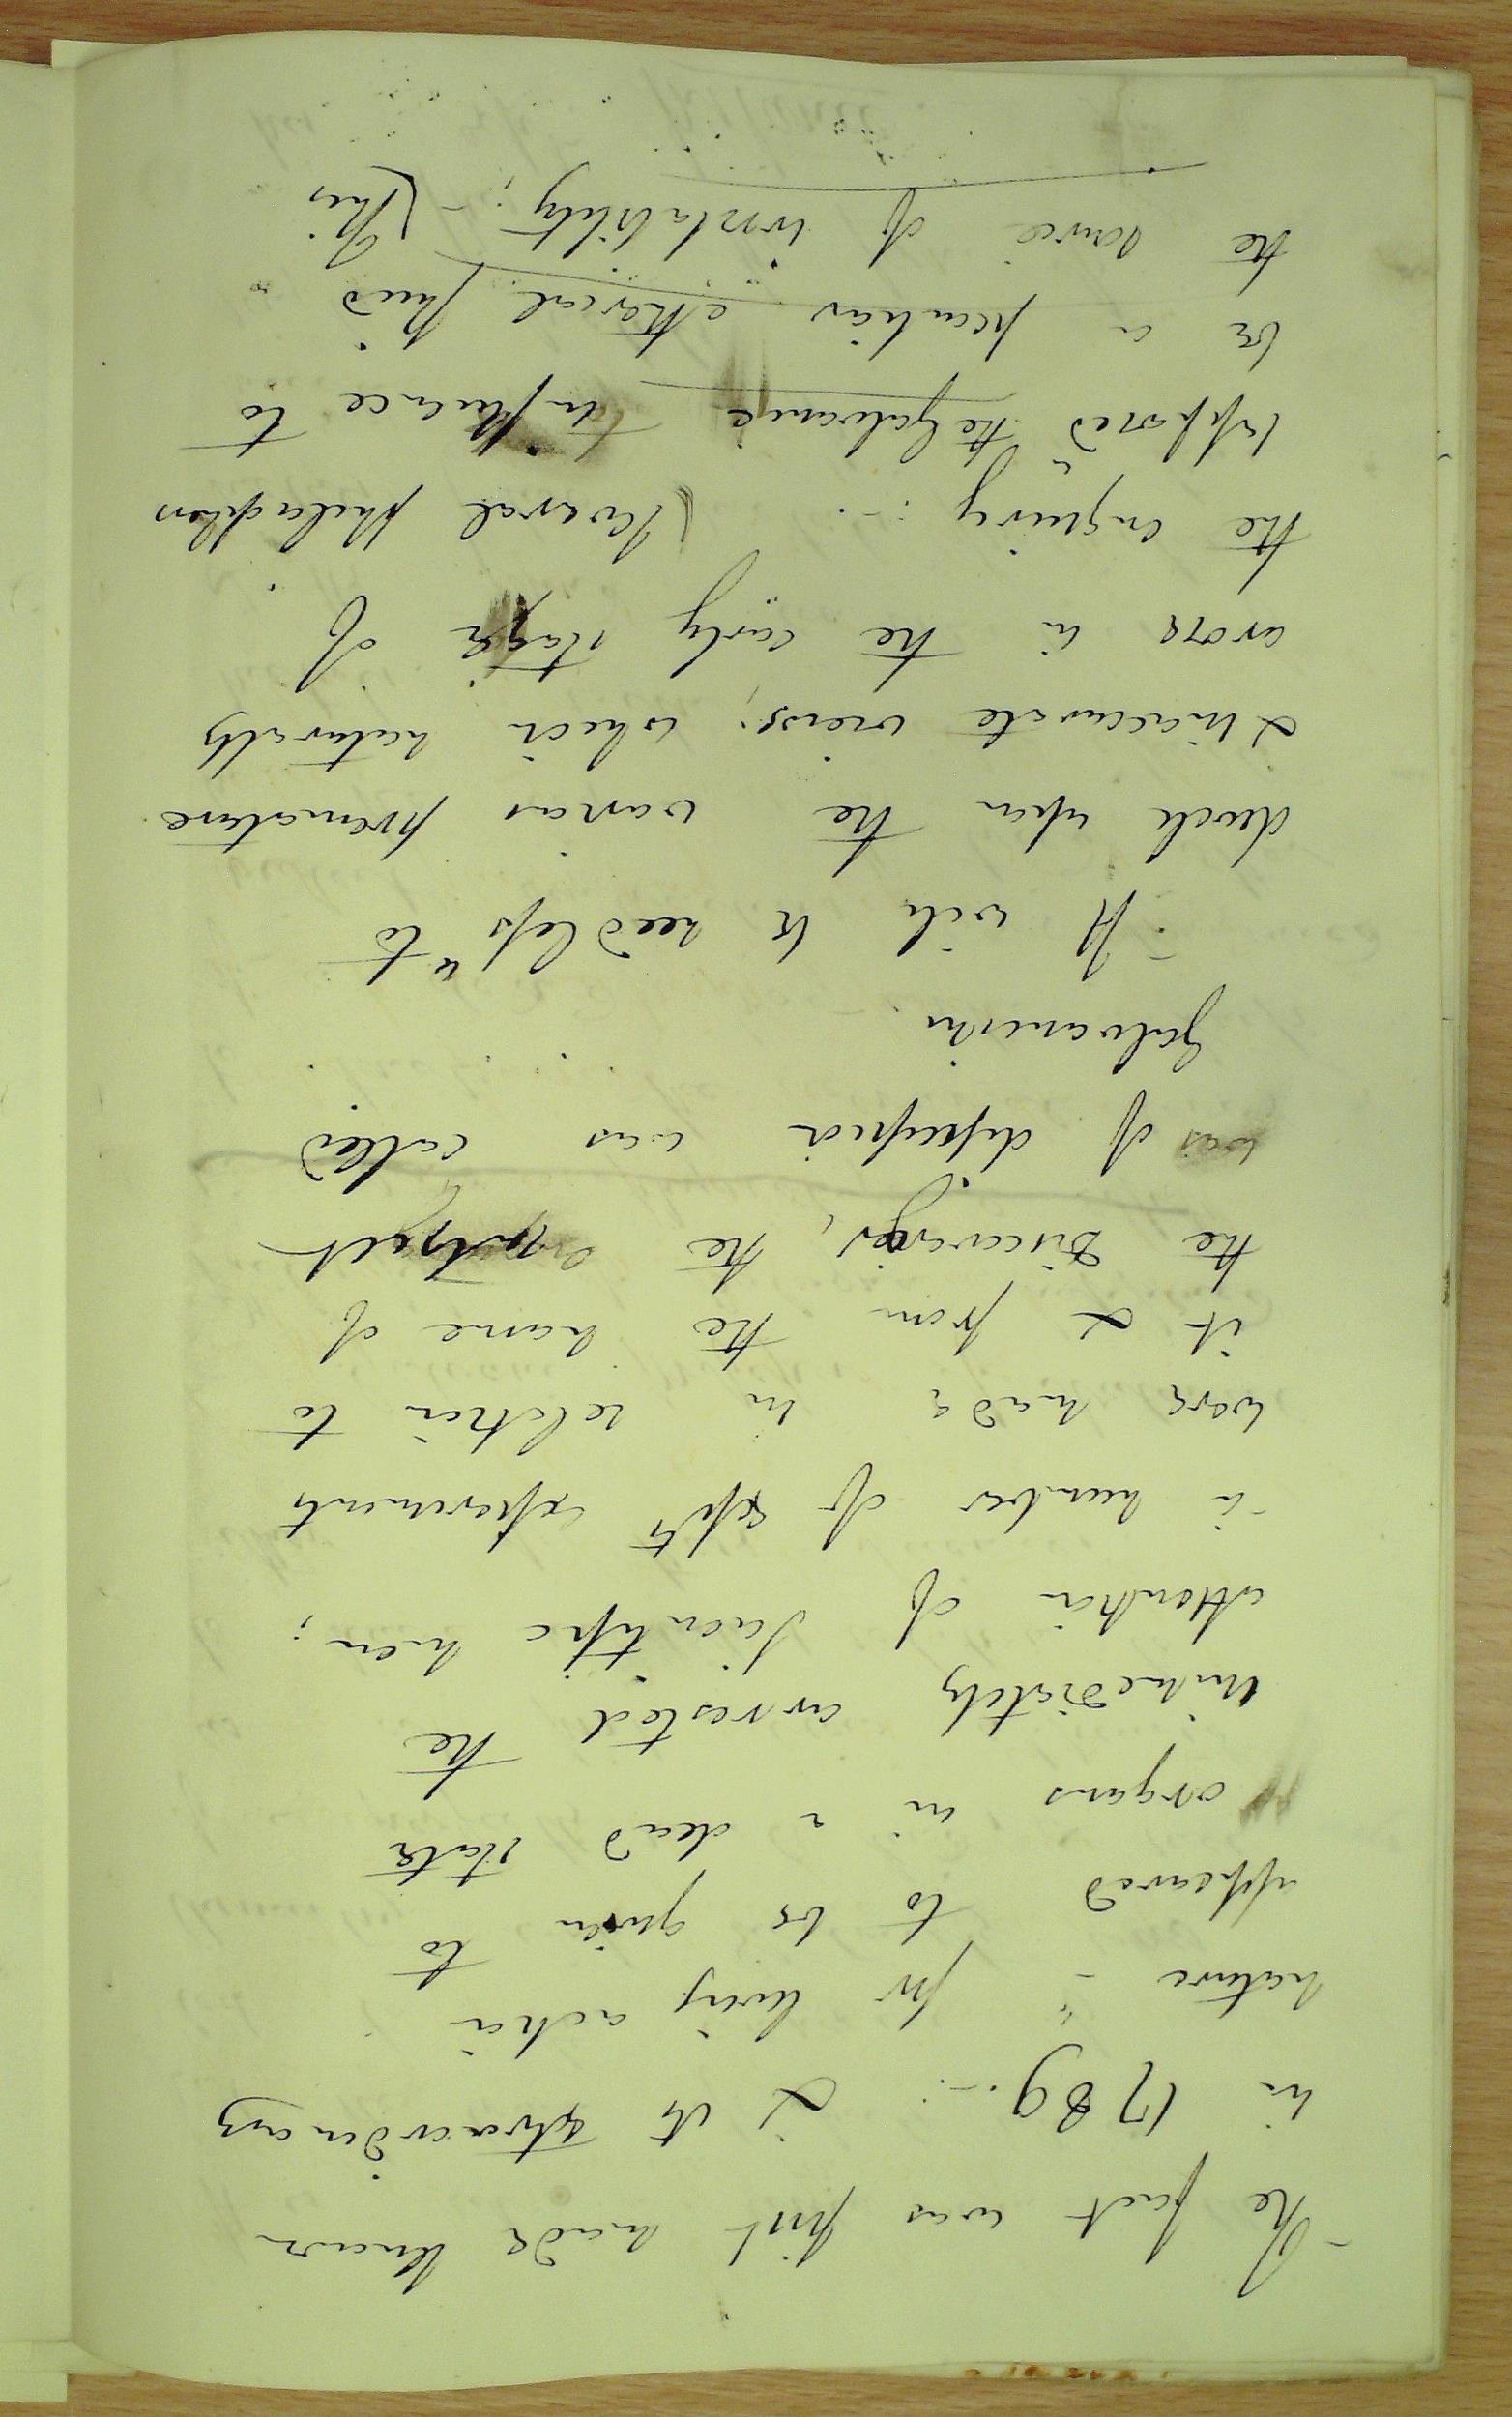 - The fact was first made known
in 1789. -: & its extraordinary
nature - " for living action
appeared to be given to
organs in a dead state
immediately arrested the
attention of scientific men;
- a number of expts experiments
were made in relation to
it & from the name of
the Discoverer, the subject
was of discussion was called
Galvanism.
- It will be needless " to
dwell upon the various premature
& inaccurate views; which naturally
arose in the early stage of
the enquiry :-. (Several philosophers
supposed " the Galvanic influence to
be a peculiar ethereal fluid "
the source of irritability; - (This